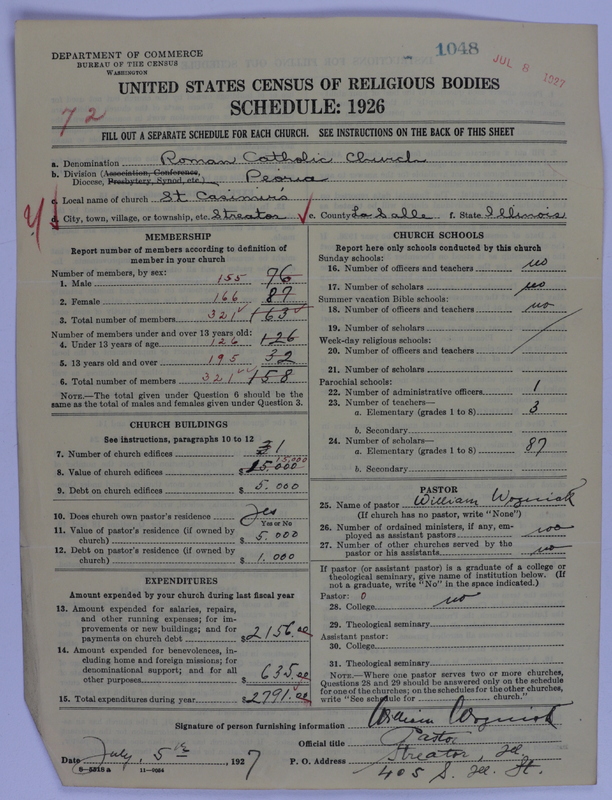 1048
JUL 8 1927
DEPARTMENT OF COMMERCE
BUREAU OF THE CENSUS
WASHINGTON
UNITED STATES CENSUS OF RELIGIOUS BODIES
SCHEDULE: 1926
72
FILL OUT A SEPARATE SCHEDULE FOR EACH CHURCH. SEE INSTRUCTIONS ON THE BACK OF THIS SHEET
a. Denomination Roman Catholic Church
b. Division (Association, Conference,
Diocese, Presbytery, Synod, etc.) Peoria
c. Local name of church St Casimir's
d. City, town, village, or township, etc. Streator e. County La Salle f. State Illinois
MEMBERSHIP
Report number of members according to definition of
member in your church
Number of members, by sex:
1. Male 155 76
2. Female 166 87
3. Total number of members 321 163
Number of members under and over 13 years old:
4. Under 13 years of age 126 126
5. 13 years old and over 195 32
6. Total number of members 321 158
NOTE.—The total given under Question 6 should be
same as the total of males and females given under Question 3.
CHURCH BUILDINGS
See instructions, paragraphs 10 to 12
7. Number of church edifices 1
15,000
8. Value of church edifices $15.000
9. Debt on church edifices $5.000
10. Does church own pastor's residence Yes
Yes or No
11. Value of pastor's residence (if owned by
church) $5.000
12. Debt on pastor's residence (if owned by
church) $1.000
EXPENDITURES
Amount expended by your church during last fiscal year
13. Amount expended for salaries, repairs,
and other running expenses; for im-
provements or new buildings; and for
payments on church debt $2156.00
14. Amount expended for benevolences, in-
cluding home and foreign missions; for
denominational support; and for all
other purposes $635.00
15. Total expenditures during year $2791.00
CHURCH SCHOOLS
Report here only schools conducted by this church
Sunday schools:
16. Number of officers and teachers no
17. Number of scholars no
Summer vacation Bible schools:
18. Number of officers and teachers no
19. Number of scholars
Week-day religious schools:
20. Number of officers and teachers
21. Number of scholars
Parochial schools:
22. Number of administrative officers 1
23. Number of teachers—
a. Elementary (grades 1 to 8) 3
b. Secondary
24. Number of scholars—
a. Elementary (grades 1 to 8) 87
b. Secondary
PASTOR
25. Name of pastor William Wozniak
(If church has no pastor, write "None")
26. Number of ordained ministers, if any, em-
ployed as assistant pastors
27. Number of other churches served by the
pastor or his assistants no
If pastor (or assistant pastor) is a graduate of a college or
theological seminary, give name of institution below. (If
not a graduate, write "No" in the space indicated.)
Pastor: 0
28. College no
29. Theological seminary
Assistant pastor:
30. College
31. Theological seminary
NOTE.—Where one pastor serves two or more churches,
Questions 28 and 29 should be answered only on the schedule
for one of the churches; on the schedules for the other churches,
write "See schedule for church."
Signature of person furnishing information William Wozniak
Official title Pastor
Date July, 5th, 1927 P. O. Address Streator, Ill.
8-5318a 11-9084 405 S. Ill. St.